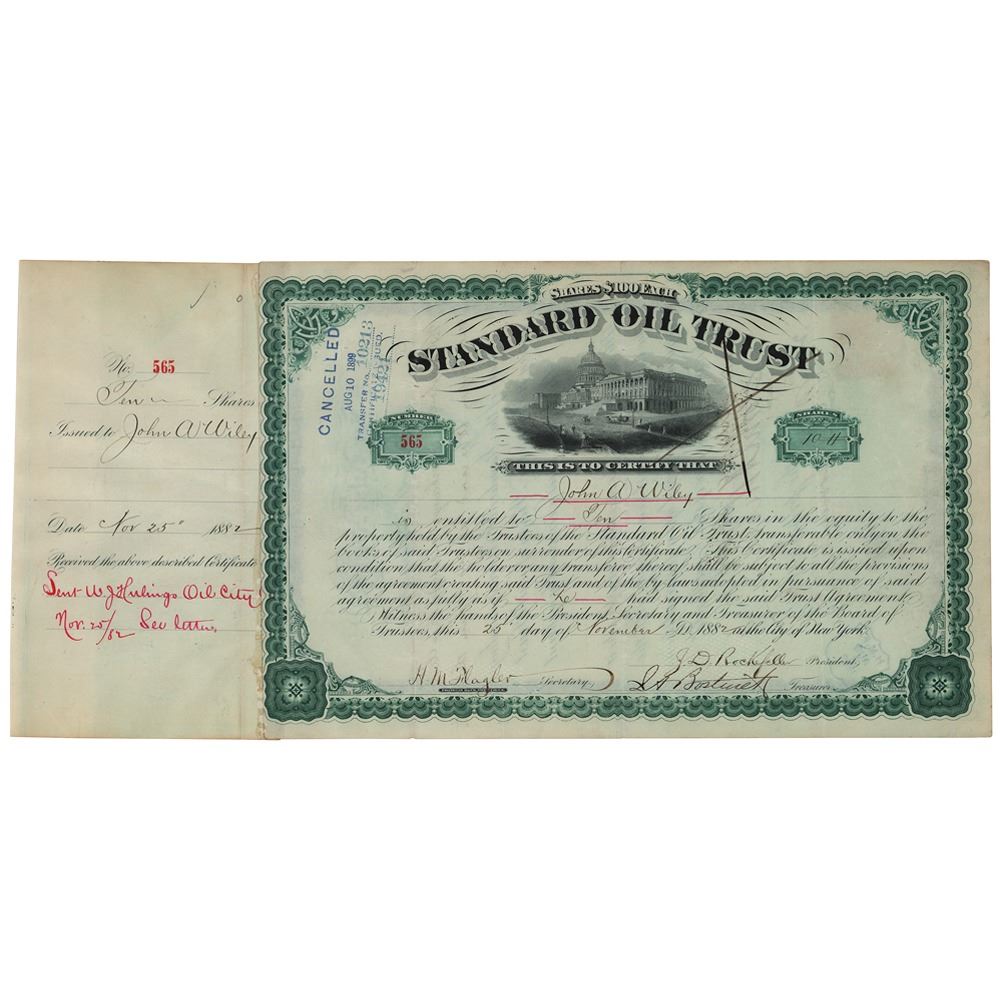 No. 565
Ten Shares
Issued to John A Wiley
Date Nov 25" 1882
Received the above described Certificate
Sent W J Hulings Oil City
Nov. 25/82 See letter,
CANCELLED
AUG 10 1899
TRANSFER No. 10213
SHARES $100 EACH
STANDARD OIL TRUST
NUMBER
565
SHARES
10
THIS IS TO CERTIFY THAT
John A Wiley
is entitled to Ten Shares in the equity to the
property held by the Trustees of the Standard Oil Trust, transferable only on the
books of said Trustees on surrender of this Certificate. This Certificate is issued upon
condition that the holder or any transferee thereof shall be subject to all the provisions
of the agreement creating said Trust and of the by-laws adopted in pursuance of said
agreement as fully as if he had signed the said Trust Agreement.
Witness the hands of the President, Secretary and Treasurer of the Board of
Trustees, this 25" day of November A.D. 1882 at the City of New York.
H M Flagler Secretary, J. D. Rockefeller President,
J A Bostwick Treasurer